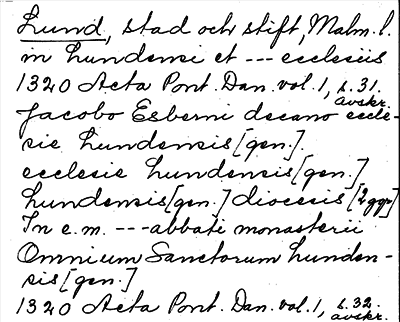 Lund, stad och stift, Malm. l.
in Lundensi et --- ecclesiis
1320 Acta Pont. Dan. vol. 1, s. 31. avskr.
Jacobo Esberni decano eccle-
sie Lundensis [gen.].
ecclesie Lundensis [gen.]
Lundensis [gen.] diocesis [2 ggr]
In e. m. --- abbati monasterii
Omnium Sanctorum Lunden-
sis [gen.]
1320 Acta Pont. Dan. vol. 1, s. 32. avskr.